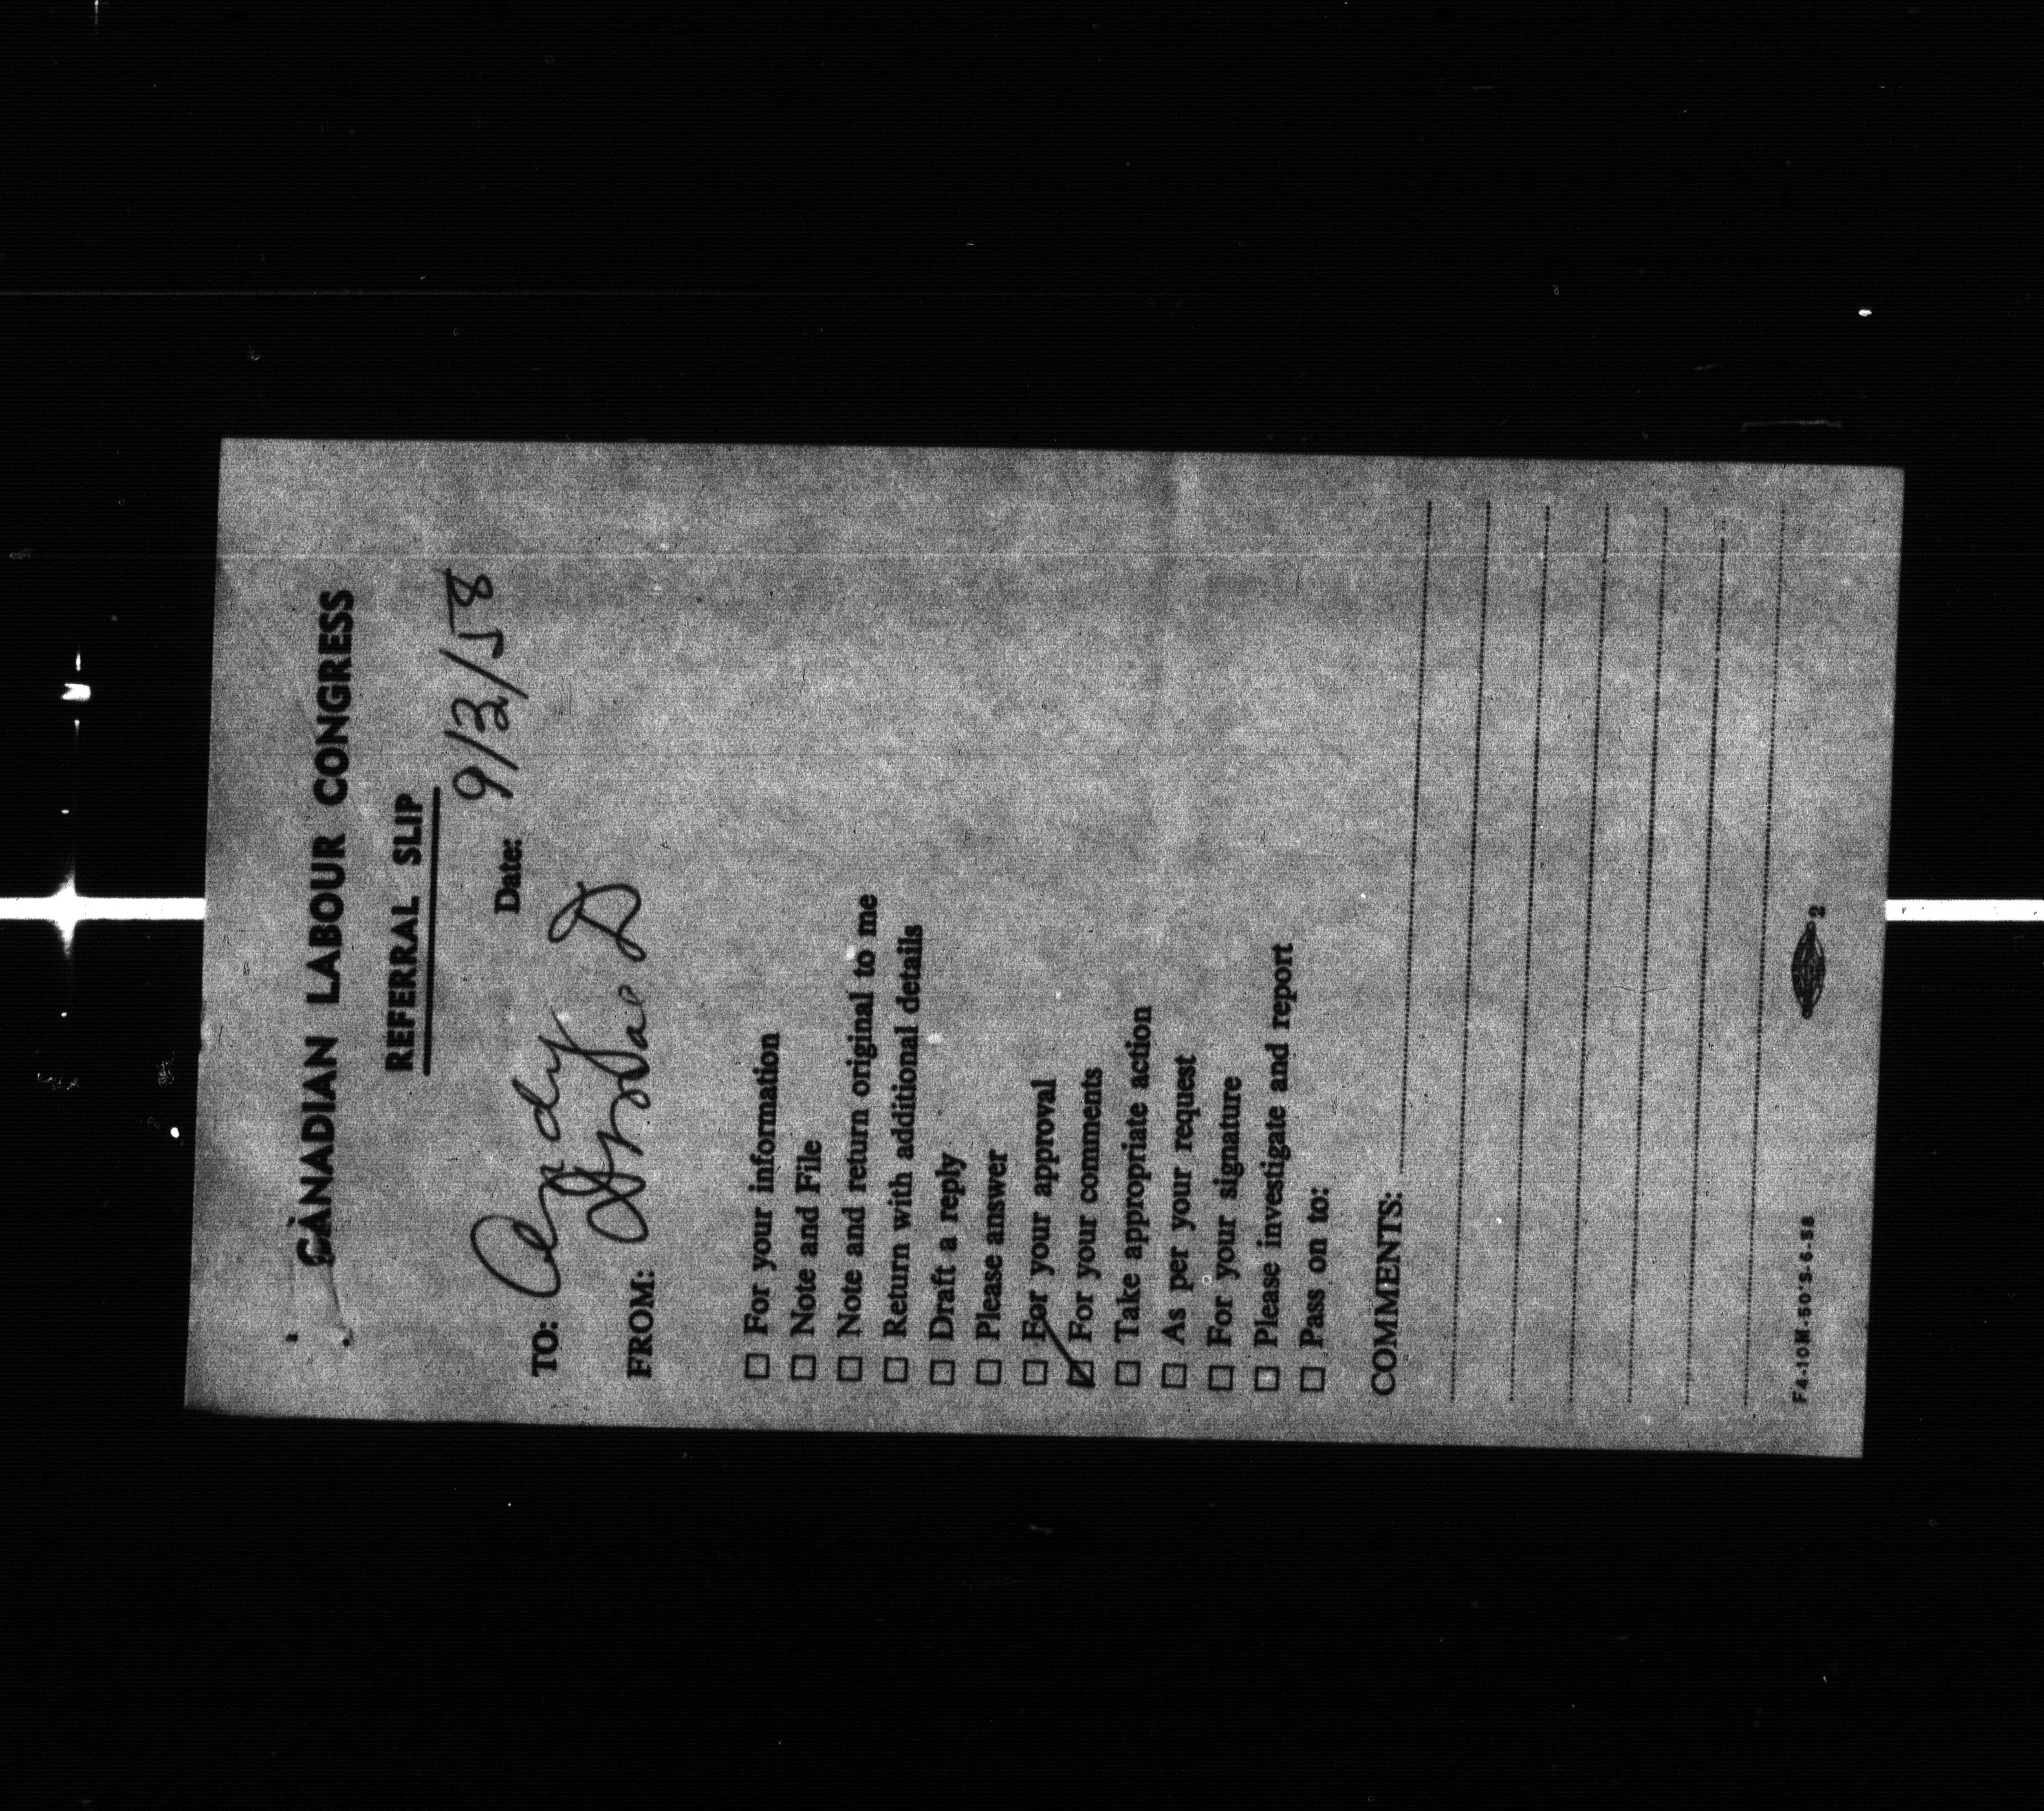 CANADIAN LABOUR CONGRESS
REFERRAL SLIP
Date: 9/3/58
TO: Andy
FROM:
☐ For your information
☐ Note and File
☐ Note and return original to me
☐ Return with additional details
☐ Draft a reply
☐ Please answer
☐ For your approval
☑ For your comments
☐ Take appropriate action
☐ As per your request
☐ For your signature
☐ Please investigate and report
☐ Pass on to:
COMMENTS:
FA-10M-50'S-6-58
2